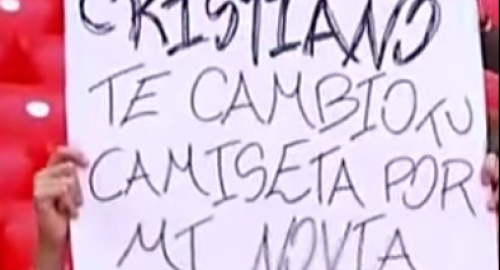 CRISTIANO
TE CAMBIO TU
CAMISETA POR
MI NOVIA